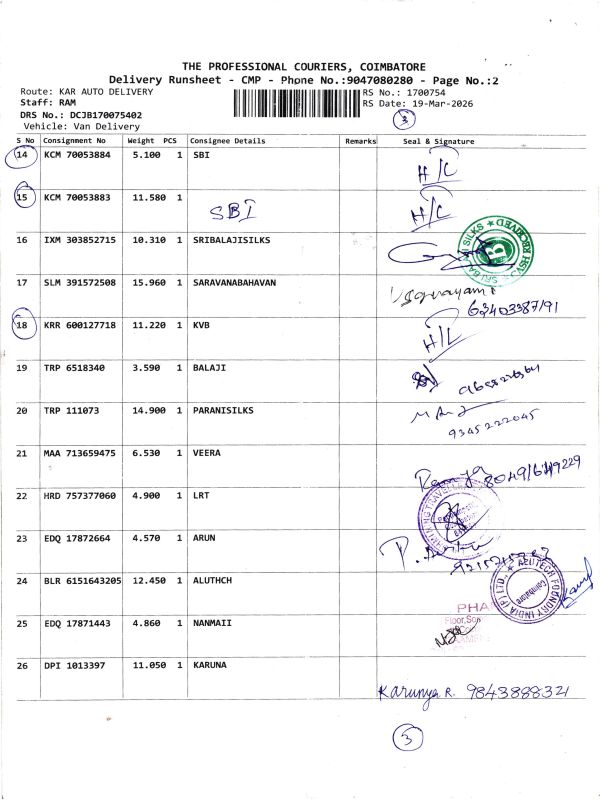 THE PROFESSIONAL COURIERS, COIMBATORE
Delivery Runsheet - CMP - Phone No.:9047080280 - Page No.:2
Route: KAR AUTO DELIVERY
RS No.: 1700754
Staff: RAM
RS Date: 19-Mar-2026
DRS No.: DCJB170075402
Vehicle: Van Delivery
3
S No Consignment No Weight PCS Consignee Details Remarks Seal & Signature
14 KCM 70053884 5.100 1 SBI H/C
15 KCM 70053883 11.580 1 SBI H/C
16 IXM 303852715 10.310 1 SRIBALAJISILKS
SRI BALAJI SILKS RECEIVED B
17 SLM 391572508 15.960 1 SARAVANABHAVAN
63403387191
18 KRR 600127718 11.220 1 KVB H/C
19 TRP 6518340 3.590 1 BALAJI
20 TRP 111073 14.900 1 PARANISILKS
9345222045
21 MAA 713659475 6.530 1 VEERA
Ramya
22 HRD 757377060 4.900 1 LRT
23 EDQ 17872664 4.570 1 ARUN
24 BLR 6151643205 12.450 1 ALUTHCH
ALUTECH FOUNDRY INDIA (P) LTD. Coimbatore
25 EDQ 17871443 4.860 1 NANMAII
PHA
26 DPI 1013397 11.050 1 KARUNA
Karunya R. 9843888321
3